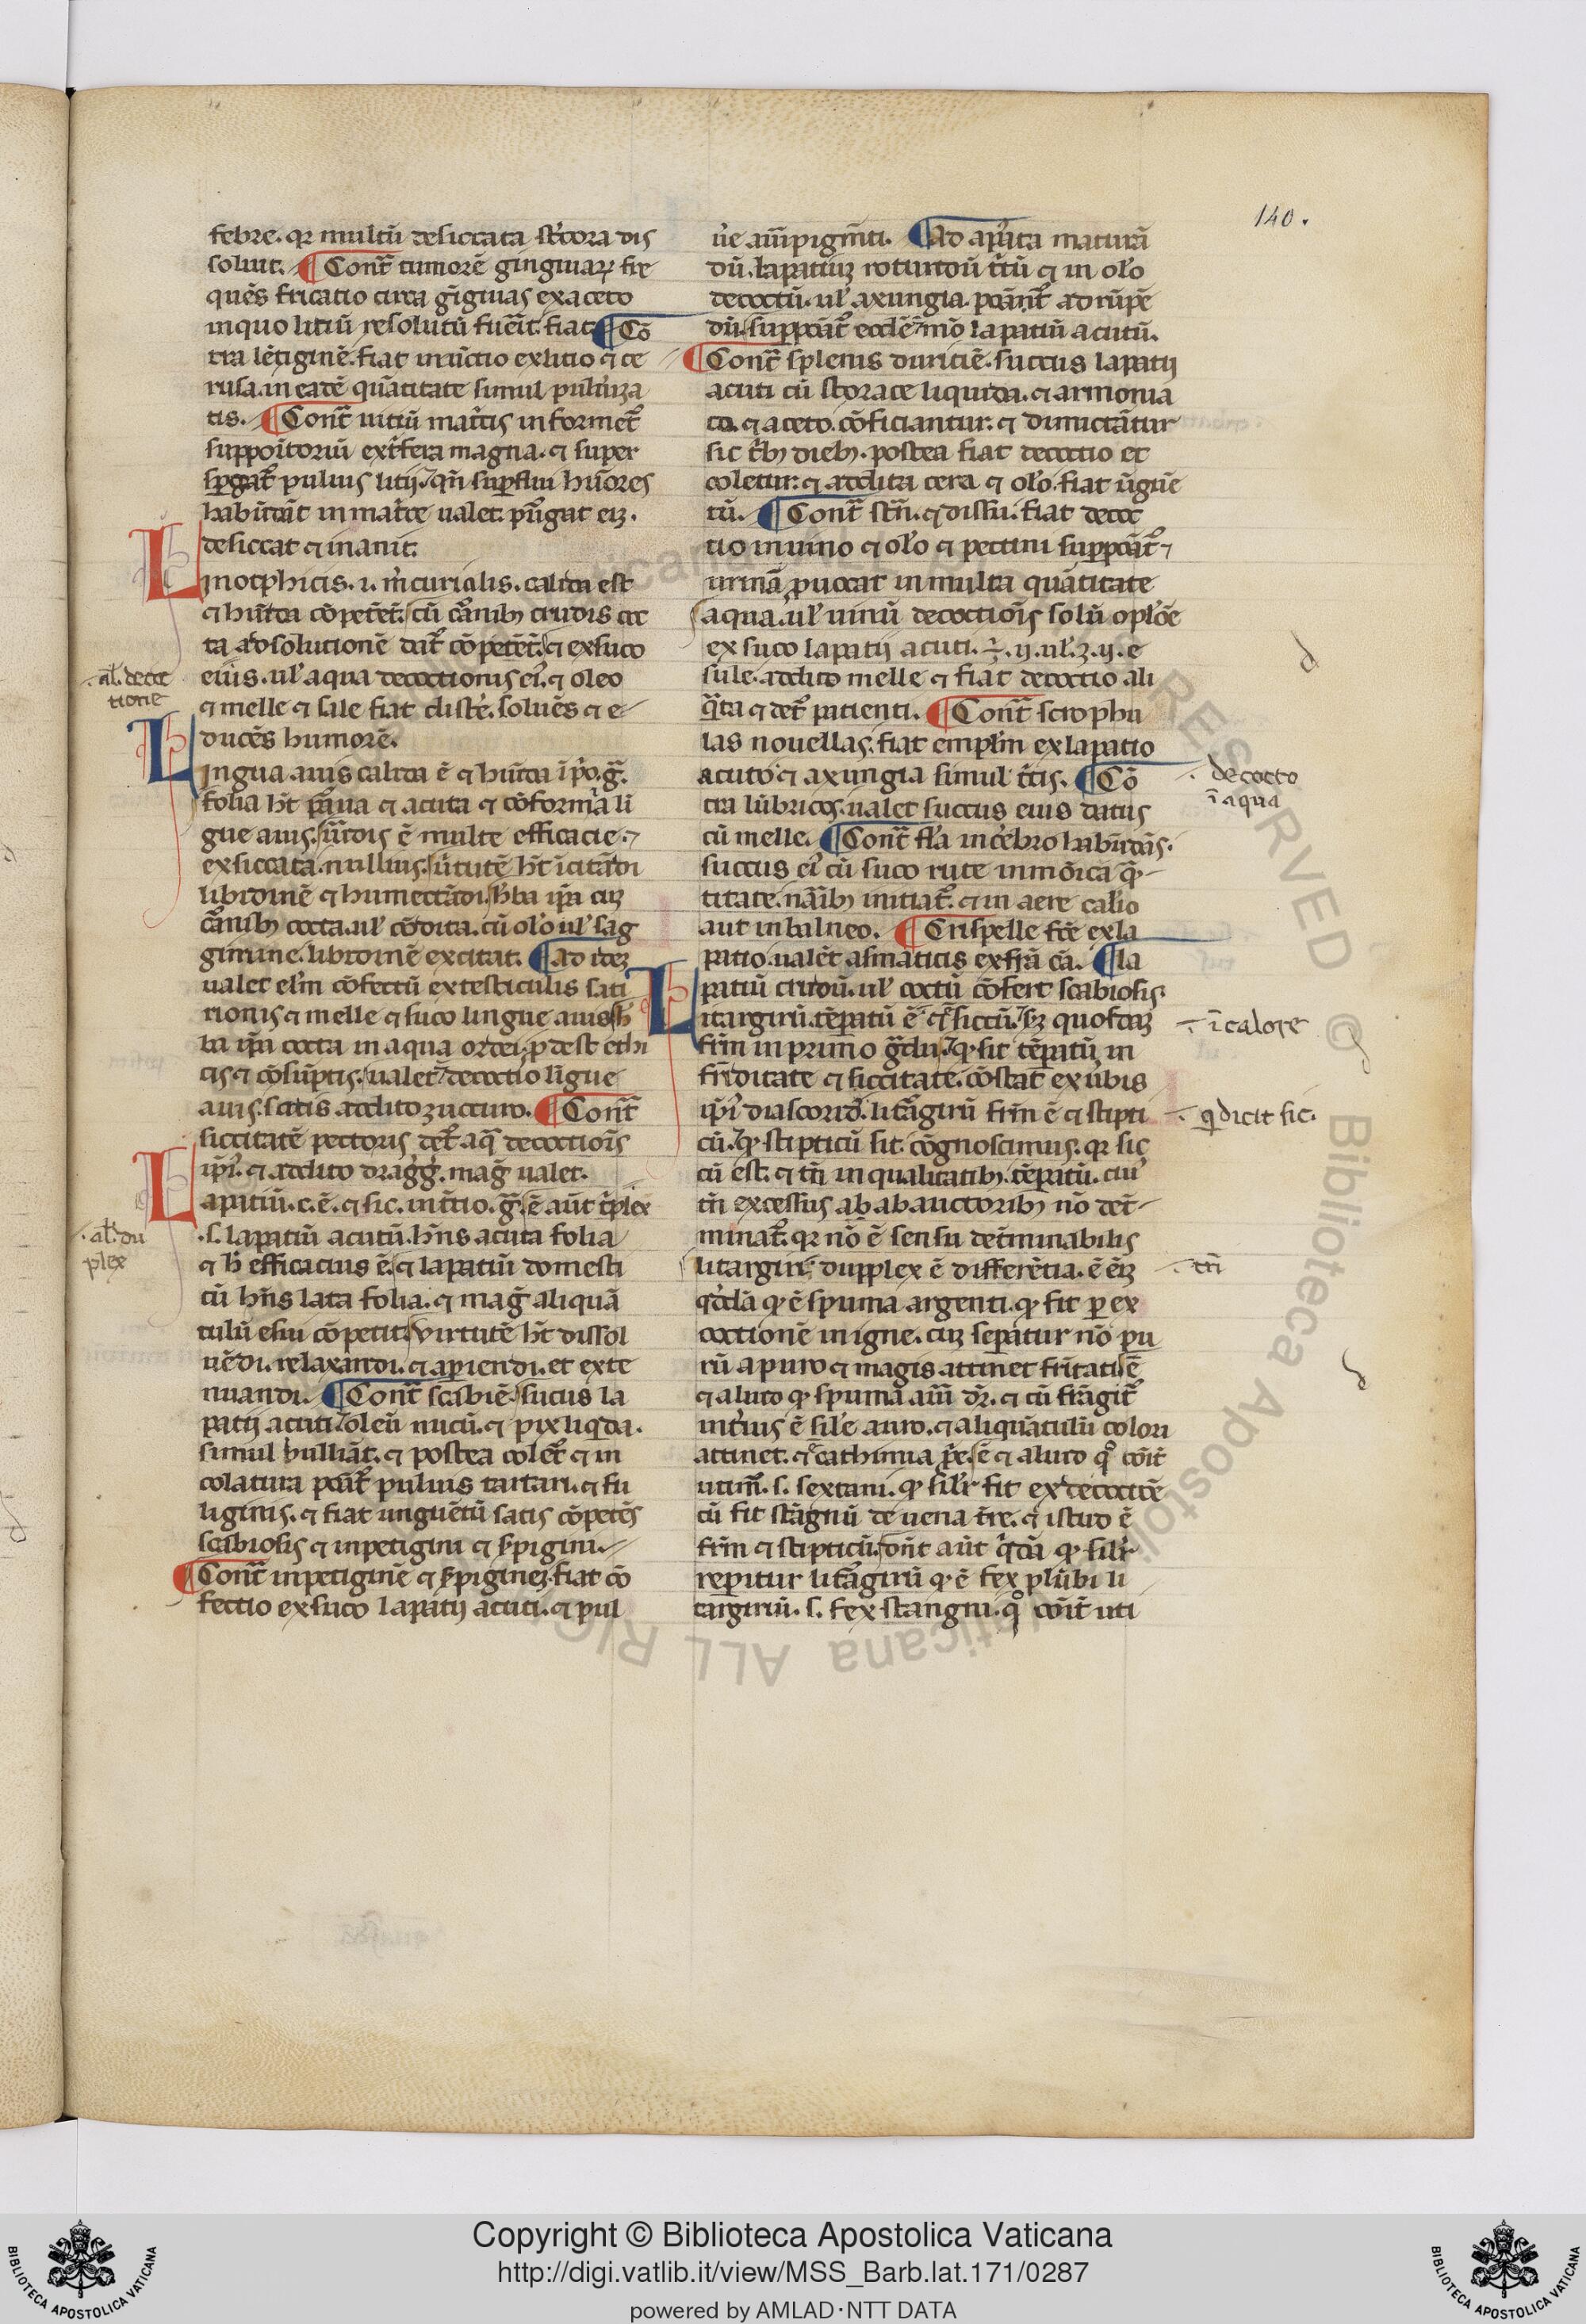 140.
febre. qr multũ desiccata stercora dis
soluit. ¶ Contᷓ tumorẽ gingiuaꝝ fre
quẽs fricatio circa gĩgiuas ex aceto
in quo litiũ resolutũ fuẽit. fiat ¶ Cõ
tra lẽtiginẽ. fiat inũctio ex litio ⁊ ce
rusa. in eadẽ quãtitate simul puluiza
tis. ¶ Contᷓ uitiũ mat̃cis informet᷑
suppoitoriũ ext̃fera magna. ⁊ super
spgat᷑ puluis litij. qñ supflui hũores
habũdãt in mat̃ce ualet. purgat eiꝫ.
desiccat ⁊ inanit.
Linotphicis. i. m̃curialis. calida est
⁊ hũida cõpetẽt᷑. cũ carnibꝫ crudis coc
ta ad solutionẽ dat᷑ cõpetẽt᷑. ⁊ ex suco
eius. ul̓ aqua decoctionis ei᷒. ⁊ oleo
⁊ melle ⁊ sale fiat clistẽ. soluẽs ⁊ e
ducẽs humorẽ.
al̓. decoc
tione
Lingua auis calida ẽ ⁊ hũida ĩ p̃o. g̃.
folia hꝫ parua ⁊ acuta ⁊ cõformia lĩ
gue auis. uirdis ẽ multe efficacie. ⁊
exsiccata. nullius. ũtutẽ hꝫ ĩcitãdi
libidinẽ ⁊ humectãdi. hba ip̃a cuꝫ
carnibꝫ cocta. ul̓ cõdita. cũ ol̓o ul̓ sag
gimine. libidinẽ excitat. ¶ Ad ideꝫ
ualet el̓m cõfectũ ex testiculis sati
rionis ⁊ melle ⁊ suco lingue auis. h̃
ba ip̃a cocta in aqua ordei. ꝓdest ethi
cis ⁊ cõsũptis. ualet ⁊ decoctio lĩgue
auis. satis addito zuccuro. ¶ Contᷓ
siccitatẽ pectoris det᷑ aq̃ decoctiõis
ip̃i᷒. ⁊ addito drag̃g̃. mag̃ ualet.
Lapatiũ. c. ẽ. ⁊ sic. in t̃cio. g̃. ẽ aũt t̃plex
.s. lapatiũ acutũ. hñs acuta folia
⁊ h̓ efficacius ẽ. ⁊ lapatiũ domesti
cũ hñs lata folia. ⁊ mag̃ aliquã
tulũ esui cõpetit. virtutẽ hꝫ dissol
uẽdi. relaxandi. ⁊ apiendi. et exte
nuandi. ¶ Contᷓ scabiẽ. sucus la
patij acuti. oleũ nucũ. ⁊ pix liq̃da.
simul bulliãt. ⁊ postea colẽt᷑ ⁊ in
colatura ponãt᷑ puluis tartari. ⁊ fu
liginis. ⁊ fiat unguẽtũ satis cõpetẽs
scabiosis ⁊ inpetigini ⁊ s̃pigini.
¶ Contᷓ inpetiginẽ ⁊ s̃piginẽ. fiat cõ
fectio ex suco lapatij acuti. ⁊ pul
al̓. du
plex
ũe auripigm̃ti. ¶ Ad apata maturã
dũ. lapatiũ rotundũ t̃tũ ⁊ in ol̓o
decoctũ. ul̓ axungia. ponãt᷑ ad rũpẽ
dũ. supponãt᷑ eodẽ mõ lapatiũ acutũ.
¶ Contᷓ splenis duriciẽ. succus lapatij
acuti cũ storace liquida. ⁊ armonia
co. ⁊ aceto. cõficiantur. ⁊ dimictãtur
sic t̃bꝫ diebꝫ. postea fiat decoctio et
coletur. ⁊ addita cera ⁊ ol̓o. fiat ũguẽ
tũ. ¶ Contᷓ stñ. ⁊ dissũ. fiat decoc
tio in uino ⁊ ol̓o ⁊ pectini supponãt᷑. ⁊
urinã ꝓuocat in multa quãtitate
aqua. ul̓ uinũ decoctiõis solũ opl̓õe
ex suco lapatij acuti. ʒ. ij. ul̓. ʒ. ij. e
sule. addito melle ⁊ fiat decoctio ali
q̃ta ⁊ det᷑ patienti. ¶ Contᷓ scrophu
las nouellas. fiat empl̓m ex lapatio
acuto ⁊ axungia simul t̃tis. ¶ Cõ
tra lũbricos. ualet succus eius datus
cũ melle. ¶ Contᷓ fl̓a in cẽbro habũdãs.
succus ei᷒ cũ suco rute in modica qᷓ
titate. naribꝫ initiat᷑. ⁊ in aere calido
aut in balneo. ¶ Crispelle fc̃e ex la
patio. ualẽt asmaticis ex fri᷒ cã. ¶ La
patiũ crudũ. ul̓ coctũ cõfert scabiosis.
decocto
ĩ aqua
Litargirũ. tẽpatũ ẽ ⁊ siccũ. sꝫ quosdaꝫ
frm̃ in primo g̃du. ꝙ sit tẽpatũ in
friditate ⁊ siccitate. cõstat ex ũbis
ip̃i᷒ diascorid̃. litargirũ frm̃ ẽ ⁊ stipti
cũ. ꝙ stipticũ sit. cõgnoscimus. qr sic
cũ est. ⁊ tñ in qualitatibꝫ. tẽpatũ. cui᷒
tñ excessus ab ab auctoribꝫ nõ det̃
minat᷑. qr nõ ẽ sensu det̃minabilis
litargiri. dupplex ẽ differẽtia. ẽ eiꝫ
q̃dã ꝙ ẽ spuma argenti. ꝙ fit ꝑ ex
coctionẽ in igne. cuꝫ sepatur nõ pu
rũ a puro ⁊ magis attinet fritati. ẽ
⁊ aliud ꝙ spuma aur̃i dr̃. ⁊ cũ frãgit᷑
int̃ius ẽ sil̓e auro. ⁊ aliquãtulũ colori
attinet. ⁊ cathimia p̃e. ẽ ⁊ aliud qđ cõit̃
utim̃. s. sextani. ꝙ sil̓r fit ex decoctiõe
cũ fit stãgnũ de uena t̃re. ⁊ istud ẽ
frm̃ ⁊ stipticũ. sunt aũt q̃dã ꝙ sil̓r
repitur litargirũ ꝙ ẽ fex plũbi li
targirũ. s. fex stangni. qđ cõit̃ uti
ĩ calore
q̃ dicit sic.
tñ
Copyright © Biblioteca Apostolica Vaticana
http://digi.vatlib.it/view/MSS_Barb.lat.171/0287
powered by AMLAD·NTT DATA
BIBLIOTECA APOSTOLICA VATICANA
BIBLIOTECA APOSTOLICA VATICANA